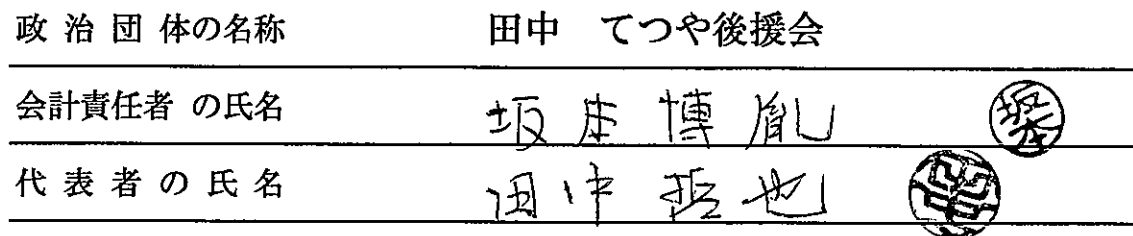 政治団体の名称 田中 てつや後援会
会計責任者の氏名 坂本博胤 坂本
代表者の氏名 田中哲也